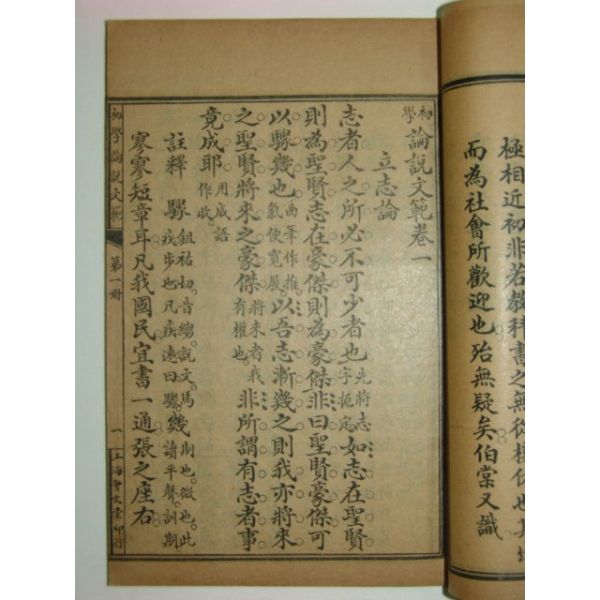 極相近初非若教科書之無從模仿也其
而為社會所歡迎也殆無疑矣伯棠又識
初學論說文範卷一
立志論
志者人之所必不可少者也先將志字扼定如志在聖賢
則為聖賢志在豪傑則為豪傑非曰聖賢豪傑可
以驟幾也曲筆作推氣便寬展以吾志漸幾之則我亦將來
之聖賢將來之豪傑將來者我有權也非所謂有志者事
竟成耶用成語作收
註釋 驟鉏祐切音縐說文馬疾步也凡疾速曰驟幾期也微也此讀平聲訓期
寥寥短章耳凡我國民宜書一通張之座右
初學論說文範
第一冊
一
上海會文堂印行